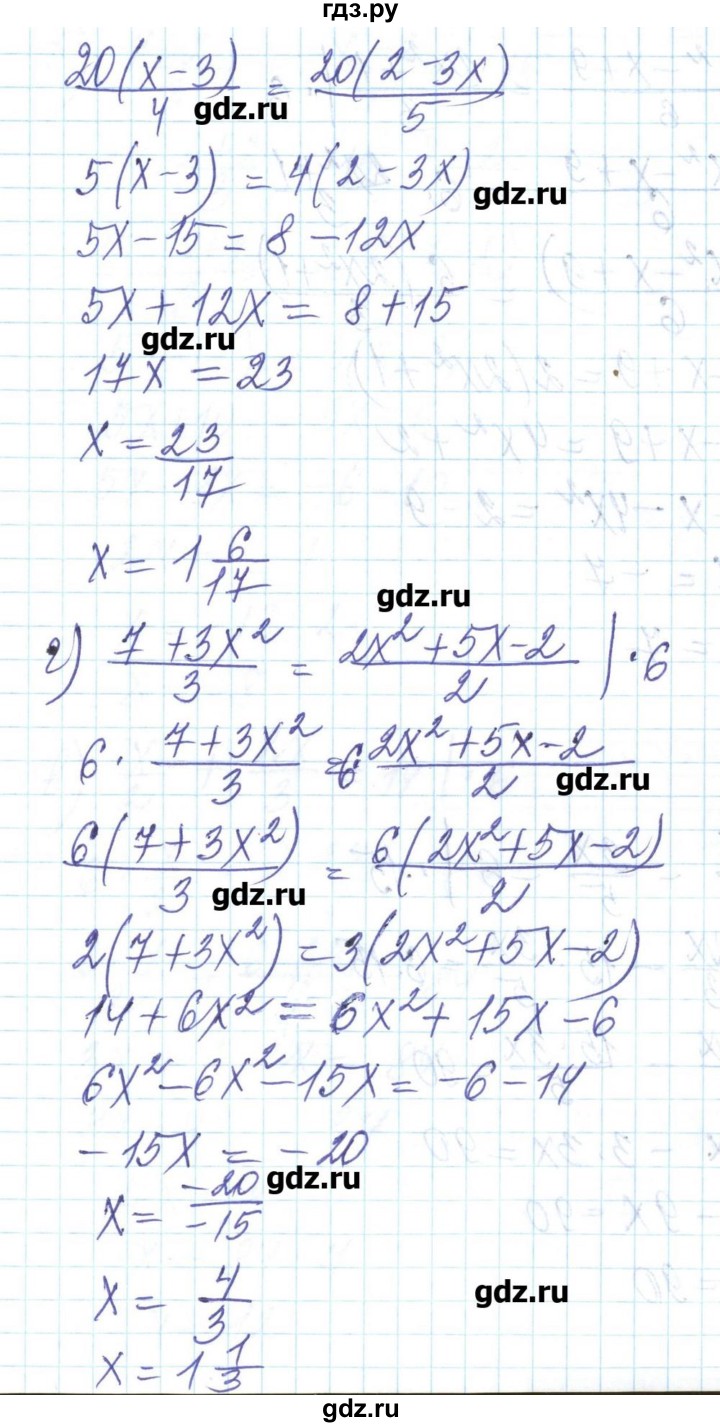 гдз.ру
20(x-3)/4 = 20(2-3x)/5
gdz.ru
5(x-3) = 4(2-3x)
gdz.ru
5x-15 = 8-12x
5x+12x = 8+15
gdz.ru
17x = 23
x = 23/17
x = 1 6/17
gdz.ru
г) (7+3x²)/3 = (2x²+5x-2)/2 | ·6
6· (7+3x²)/3 = 6· (2x²+5x-2)/2
gdz.ru
6(7+3x²)/3 = 6(2x²+5x-2)/2
gdz.ru
2(7+3x²) = 3(2x²+5x-2)
14+6x² = 6x²+15x-6
6x²-6x²-15x = -6-14
-15x = -20
gdz.ru
x = -20/-15
x = 4/3
gdz.ru
x = 1 1/3
gdz.ru